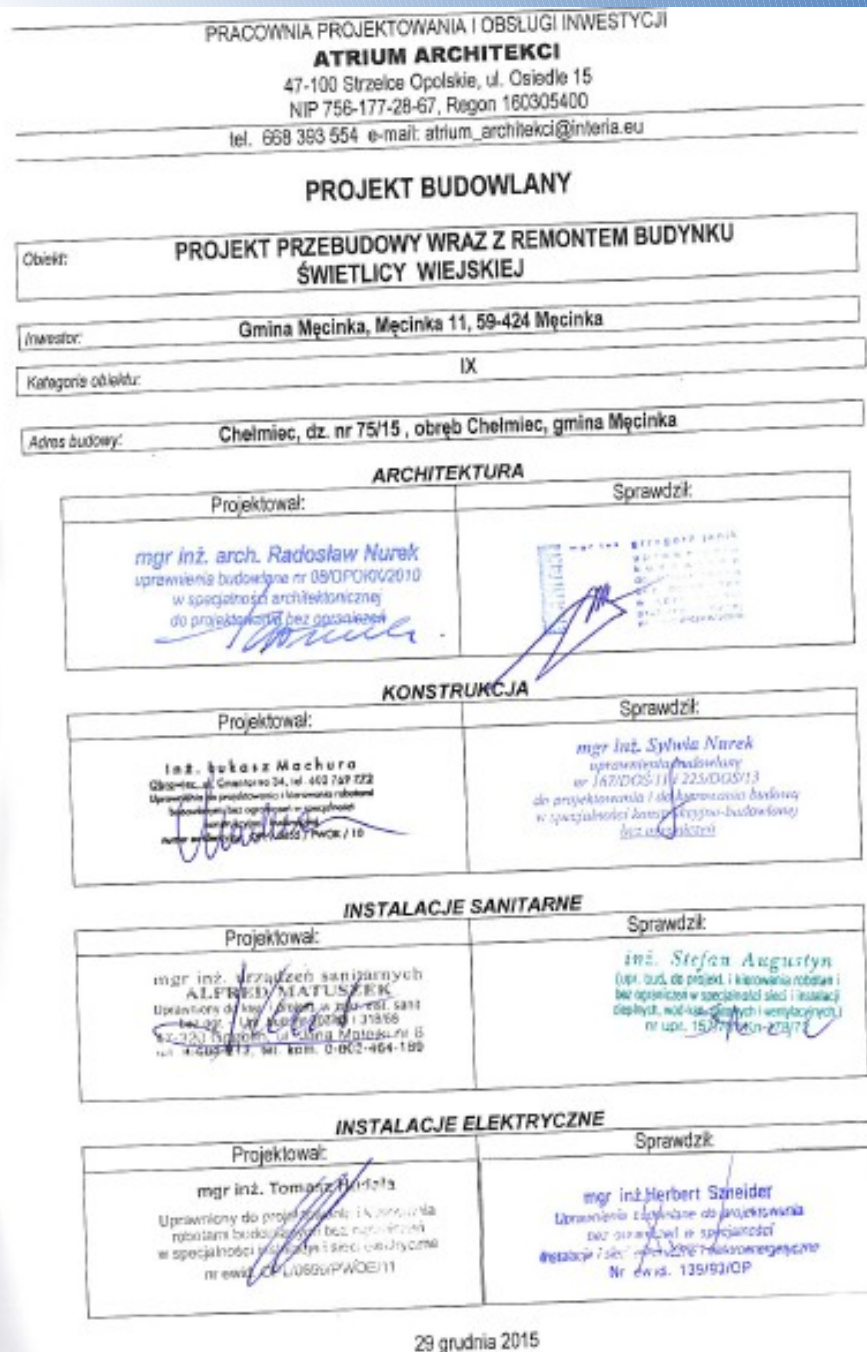 PRACOWNIA PROJEKTOWANIA I OBSŁUGI INWESTYCJI
ATRIUM ARCHITEKCI
47-100 Strzelce Opolskie, ul. Osiedle 15
NIP 756-177-28-67, Regon 160305400
tel. 668 393 554 e-mail: atrium_architekci@interia.eu
PROJEKT BUDOWLANY
Obiekt: PROJEKT PRZEBUDOWY WRAZ Z REMONTEM BUDYNKU
ŚWIETLICY WIEJSKIEJ
Inwestor: Gmina Męcinka, Męcinka 11, 59-424 Męcinka
Kategoria obiektu: IX
Adres budowy: Chełmiec, dz. nr 75/15 , obręb Chełmiec, gmina Męcinka
ARCHITEKTURA
Projektował: Sprawdził:
mgr inż. arch. Radosław Nurek
uprawnienia budowlane nr 08/OPOKK/2010
w specjalności architektonicznej
do projektowania bez ograniczeń
mgr inż. grzegorz janik
KONSTRUKCJA
Projektował: Sprawdził:
inż. Łukasz Machura
34, tel. 602 769 772
Uprawnienia do projektowania i kierowania robotami
budowlanymi bez ograniczeń w specjalności
/ PWOK / 10
mgr inż. Sylwia Nurek
uprawnienia budowlane
nr 167/DOŚ/11 i 225/DOŚ/13
do projektowania i do kierowania budową
w specjalności konstrukcyjno-budowlanej
bez ograniczeń
INSTALACJE SANITARNE
Projektował: Sprawdził:
mgr inż. urządzeń sanitarnych
ALFRED MATUSZEK
Uprawniony do
i 318/88
ul. Jana Matejki nr 6
tel. kom. 0-602-464-189
inż. Stefan Augustyn
(upr. bud. do projekt. i kierowania robotami
bez ograniczeń w specjalności sieci i instalacji
cieplnych, wod-kan, i wentylacyjnych)
nr upr.
INSTALACJE ELEKTRYCZNE
Projektował: Sprawdził:
mgr inż. Tomasz
Uprawniony do projektowania i kierowania
robotami budowlanymi bez ograniczeń
w specjalności instalacje i sieci elektryczne
nr ewid. OPL/0695/PWOE/11
mgr inż. Herbert Szneider
Uprawnienia budowlane do projektowania
bez ograniczeń w specjalności
instalacje i sieci elektryczne i elektroenergetyczne
Nr ewid. 139/93/OP
29 grudnia 2015